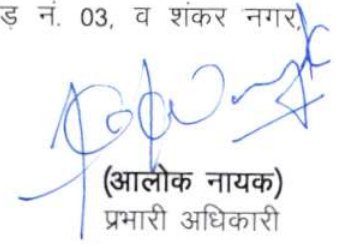 ड़ नं. 03, व शंकर नगर,
(आलोक नायक)
प्रभारी अधिकारी